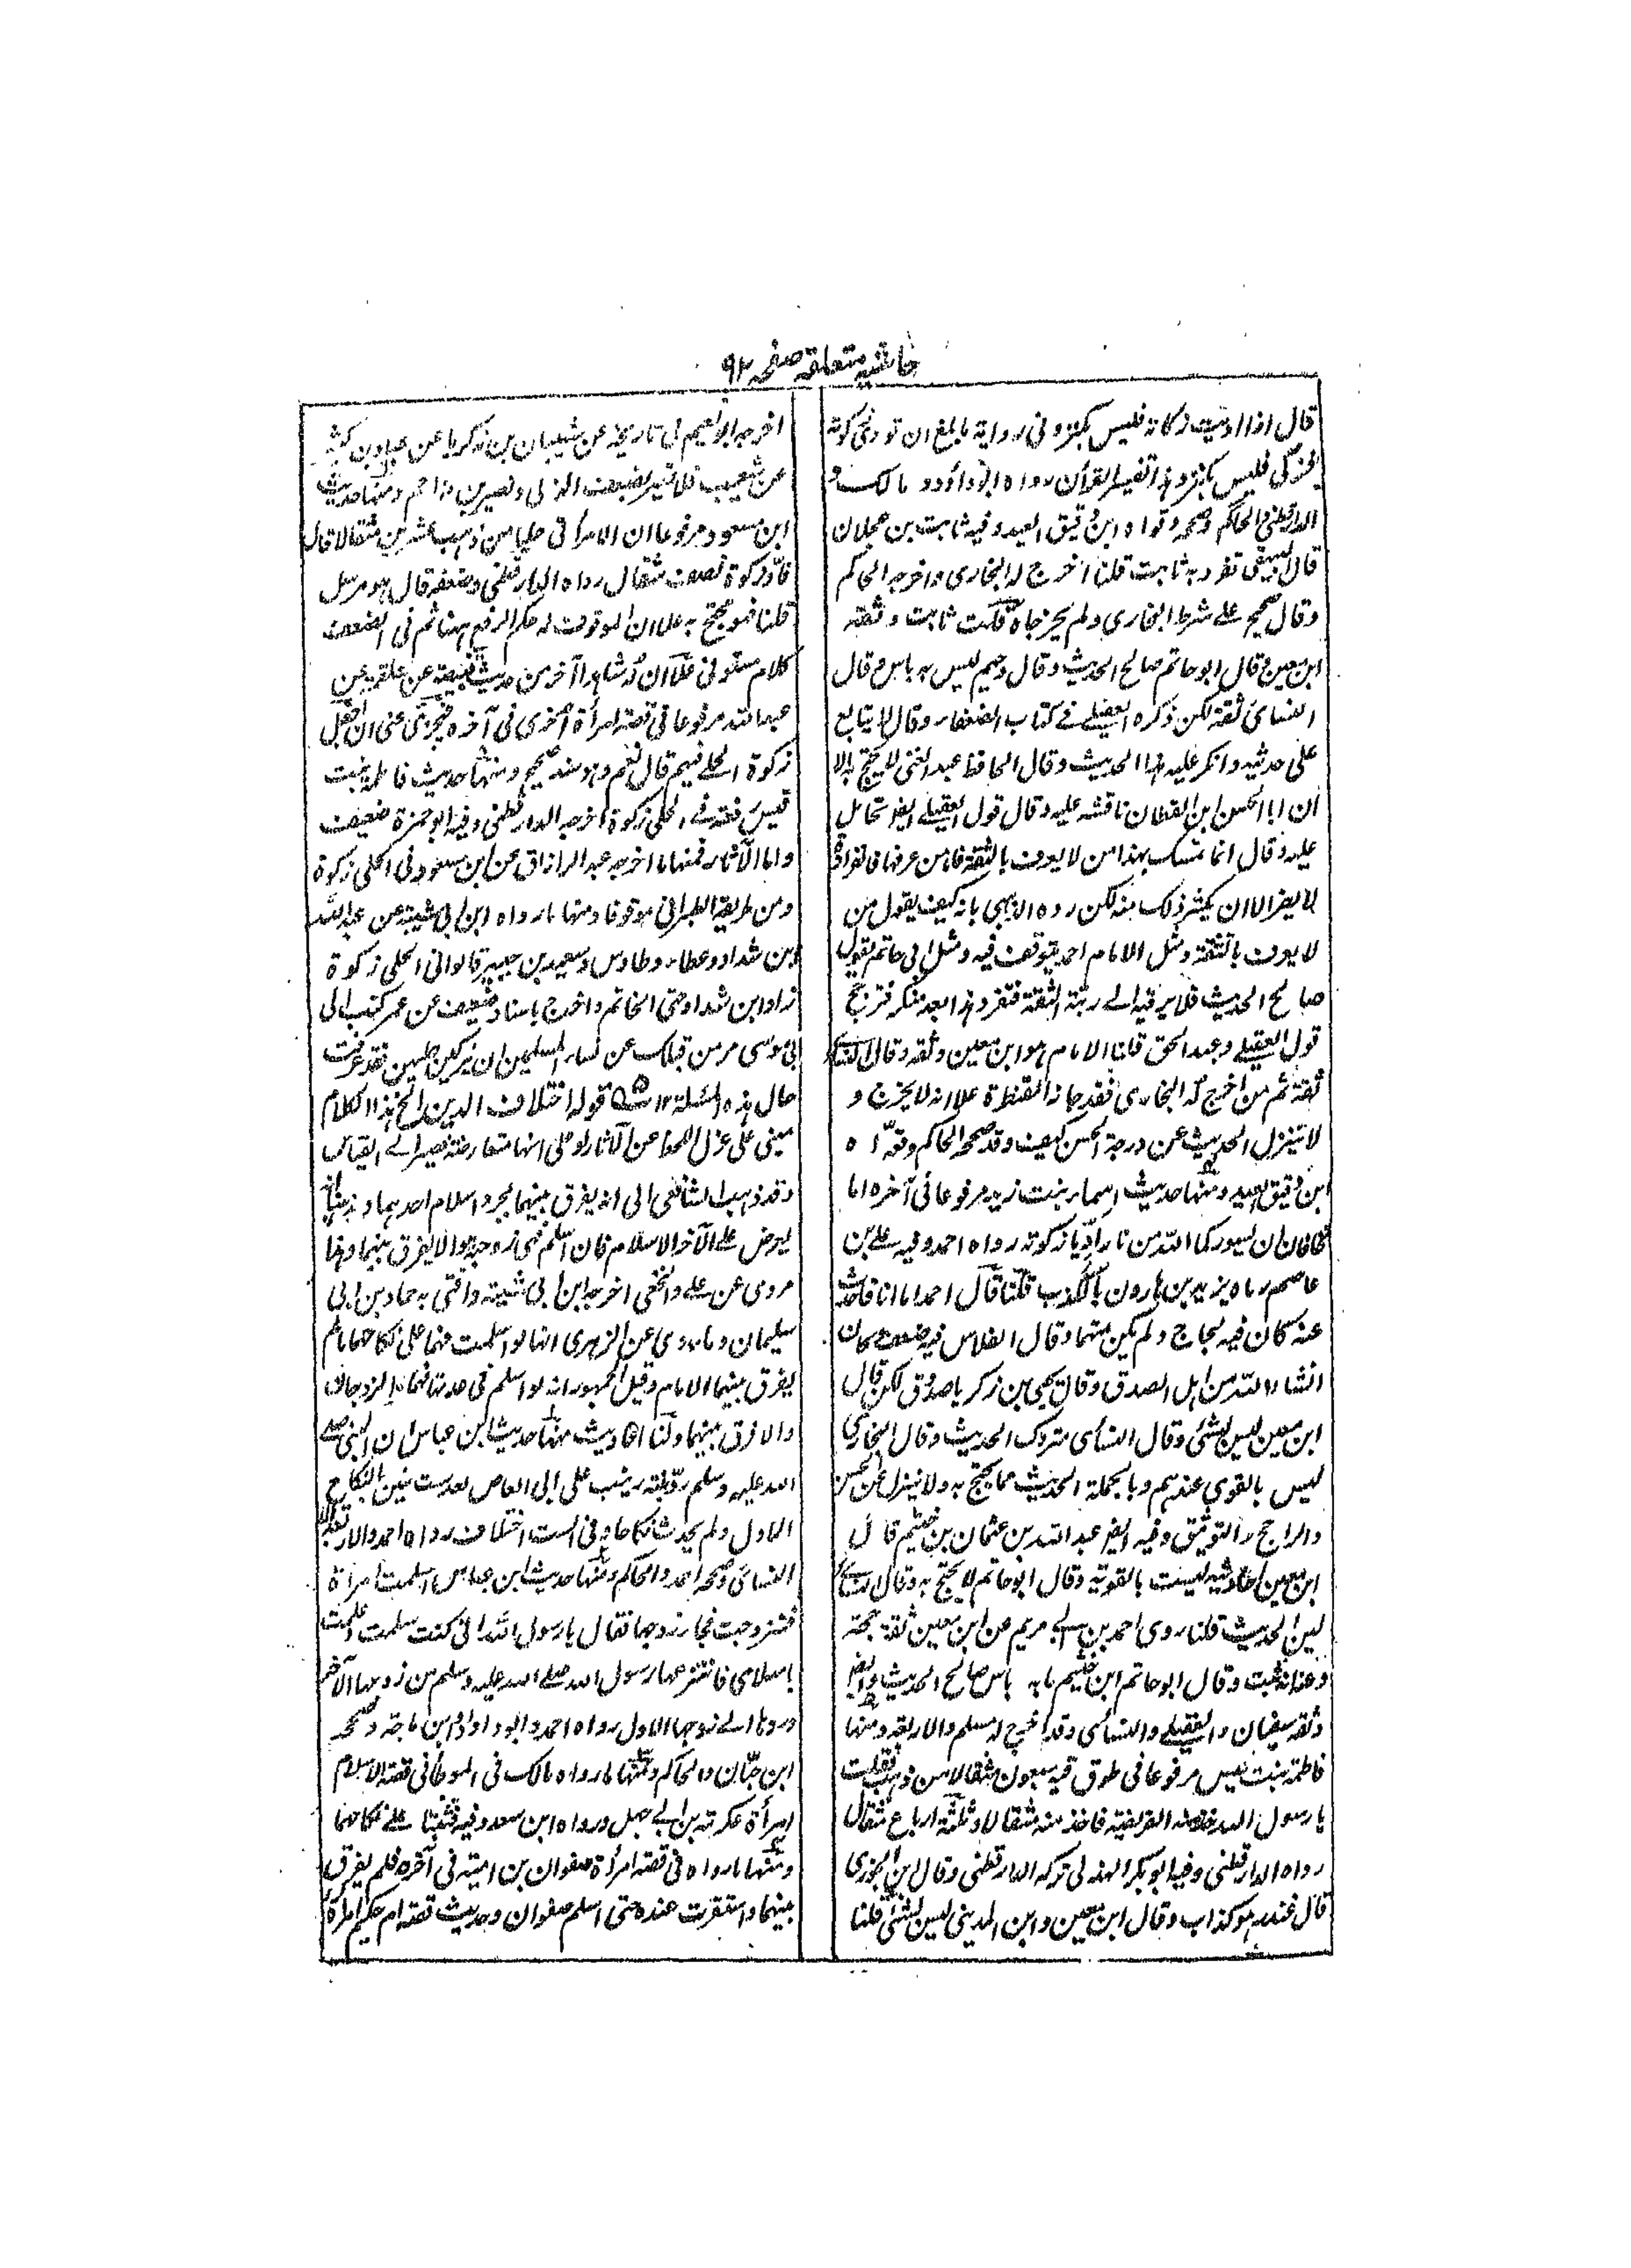 حاشیہ متعلقہ صفحہ ۹۲
قال اذا ادیت زکاتہ فلیس بکنز وفی روایة ما بلغ ان تودی زکوتہ
فزکی فلیس بکنز وہذا تفسیر القرآن رواہ ابوداؤد و مالک و
الدارقطنی والحاکم وصححہ وقواہ ابن دقیق العید وفیہ ثابت بن عجلان
قال البیہقی تفرد بہ ثابت قلنا اخرج لہ البخاری واخرجہ الحاکم
وقال صحیح علے شرط البخاری ولم یخرجاہ قلت ثابت وثقہ
ابن معین وقال ابوحاتم صالح الحدیث وقال دحیم لیس بہ باس وقال
النسائی ثقة لکن ذکرہ العقیلے فے کتاب الضعفاء وقال لا یتابع
علی حدیثہ وانکر علیہ ہذا الحدیث وقال الحافظ عبد الغنی لا یحتج بہ الا
ان ابا الحسن ابن القطان ناقشہ علیہ وقال قول العقیلے ایضا تحامل
علیہ وقال انما یتمسک بہذا من لا یعرف بالثقة فاما من عرف بہا فانفرادہ
لا یضر الا ان یکثر ذلک منہ لکن ردہ الذہبی بانہ کیف یقول من
لا یعرف بالثقة ومثل الامام احمد یتوقف فیہ ومثل ابی حاتم یقول
صالح الحدیث فلا یرقیہ الے رتبة الثقة فتفرد ہذا یعد منکر فترجح
قول العقیلے وعبد الحق قلنا الامام ہو ابن معین وثقہ وقال النسائے
ثقة ثم من اخرج لہ البخاری فقد جاز القنطرة علا انہ لا یخرج و
لا ینزل الحدیث عن درجة الحسن کیف وقد صححہ الحاکم وقواہ
ابن دقیق العید ومنہا حدیث اسماء بنت زید مرفوعا فی آخرہ اما
تخافان ان یسورکما اللہ من نار ادّیا زکوتہ رواہ احمد وفیہ علے بن
عاصم رماہ یزید بن ہارون بالکذب قلنا قال احمد اما انا فاحدث
عنہ کان فیہ لجاج ولم یکن متہما وقال الفلاس فیہ ضعف کان
انشاء اللہ من اہل الصدق وقال یحیی بن زکریا صدوق لکن قال
ابن معین لیس بشئی وقال النسائی متروک الحدیث وقال البخاری
لیس بالقوی عندہم وبالجملة الحدیث مما یحتج بہ ولا ینزل عن الحسن
والراجح التوثیق وفیہ ایضا عبد اللہ بن عثمان بن خثیم قال
ابن معین احادیثہ لیست بالقویة وقال ابوحاتم لا یحتج بہ وقال النسائے
لین الحدیث قلنا روی احمد بن ابی مریم عن ابن معین ثقة حجة
وقال ابوحاتم ابن خثیم ما بہ باس صالح الحدیث وایضا
وثقہ سفیان والعقیلے والنسائی وقد اخرج لہ مسلم والاربعة ومنہا
فاطمة بنت قیس مرفوعا فی طوق فیہ سبعون مثقالا من ذہب فقلت
یا رسول اللہ خذ منہ الفریضة فاخذ منہ مثقالا وثلثة ارباع مثقال
رواہ الدارقطنی وفیہ ابوبکر الہذلی ترکہ الدارقطنی وقال ابن الجوزی
قال غندر ہو کذاب وقال ابن معین وابن المدینی لیس بشئی قلنا
اخرجہ ابونعیم فی تاریخہ عن شیبان بن زکریا عن عباد بن کثیر
عن شعیب فلا تضعیف الہذلی ونصیر بن مزاحم ومنہا حدیث
ابن مسعود مرفوعا ان لامرأتی حلیا من ذہب عشرین مثقالا قال
فأدّ زکوتہ نصف مثقال رواہ الدارقطنی وضعفہ قال ہو مرسل
قلنا فہو یحتج بہ علا ان الموقوف لہ حکم الرفع ہہنا ثم فی الضعف
کلام مستوفی علا ان لہ شاہدا آخر من حدیث قبیصة عن علقمة عن
عبد اللہ مرفوعا فی قصة امرأة اخری فی آخرہ فیجزی عنی ان اجعل
زکوة الحلے فیہم قال نعم وہو سند صحیح ومنہا حدیث فاطمة بنت
قیس فقد فے الحلی زکوة اخرجہ الدارقطنی وفیہ ابوحمزة ضعیف
واما الآثار فمنہا ما اخرجہ عبد الرزاق عن ابن مسعود فی الحلی زکوة
ومن طریقہ الطبرانی موقوفا ومنہا ما رواہ ابن ابی شیبة عن عبد اللہ
ابن شداد وعطاء وطاوس وسعید بن جبیر قالوا فی الحلی زکوة
زاد ابن شداد حتی الخاتم واخرج باسناد ضعیف عن عمر کتب الی
ابی موسی مر من قبلک من نساء المسلمین ان یزکین حلیہن فقد عرفت
حال ہذہ المسئلة ۱۲ قولہ اختلاف الدین الخ ہذا الکلام
مبنی علی عزل اللحظ عن الآثار او علی انہا متعارضة فیصار الے القیاس
وقد ذہب الشافعی الی انہ یفرق بینہما بمجرد اسلام احدہما ومذہبنا ان
یعرض علے الآخر الاسلام فان اسلم فہی زوجتہ والا یفرق بینہما وہذا
مروی عن علے والنخعی اخرجہ ابن ابی شیبة وافتی بہ حماد بن ابی
سلیمان وما روی عن الزہری انہا لو اسلمت فہما علی نکاحہما ما لم
یفرق بینہما الامام وقیل الجمہور انہ لو اسلم فی عدتہا فہما الزوجان
والا فرق بینہما ولنا احادیث منہا حدیث ابن عباس ان النبی صلے
اللہ علیہ وسلم ردّ بنتہ زینب علی ابی العاص بعد ست سنین بالنکاح
الاول ولم یحدث نکاحا وفی الست اختلاف رواہ احمد والاربعة الا
النسائی وصححہ احمد والحاکم ومنہا حدیث ابن عباس اسلمت امرأة
فتزوجت فجاء زوجہا فقال یا رسول اللہ انی کنت اسلمت وعلمت
باسلامی فانتزعہا رسول اللہ صلے اللہ علیہ وسلم من زوجہا الآخر
وردہا الے زوجہا الاول رواہ احمد وابو داؤد وابن ماجة وصححہ
ابن حبّان والحاکم ومنہا ما رواہ مالک فی الموطأ فی قصة الاسلام
امرأة عکرمة بن ابی جہل ورواہ ابن سعد وفیہ فثبتا علے نکاحہما
ومنہا ما رواہ فی قصة امرأة صفوان بن امیة فی آخرہ فلم یفرق
بینہما واستقرت عندہ حتی اسلم صفوان وحدیث قصة ام حکیم امرأة